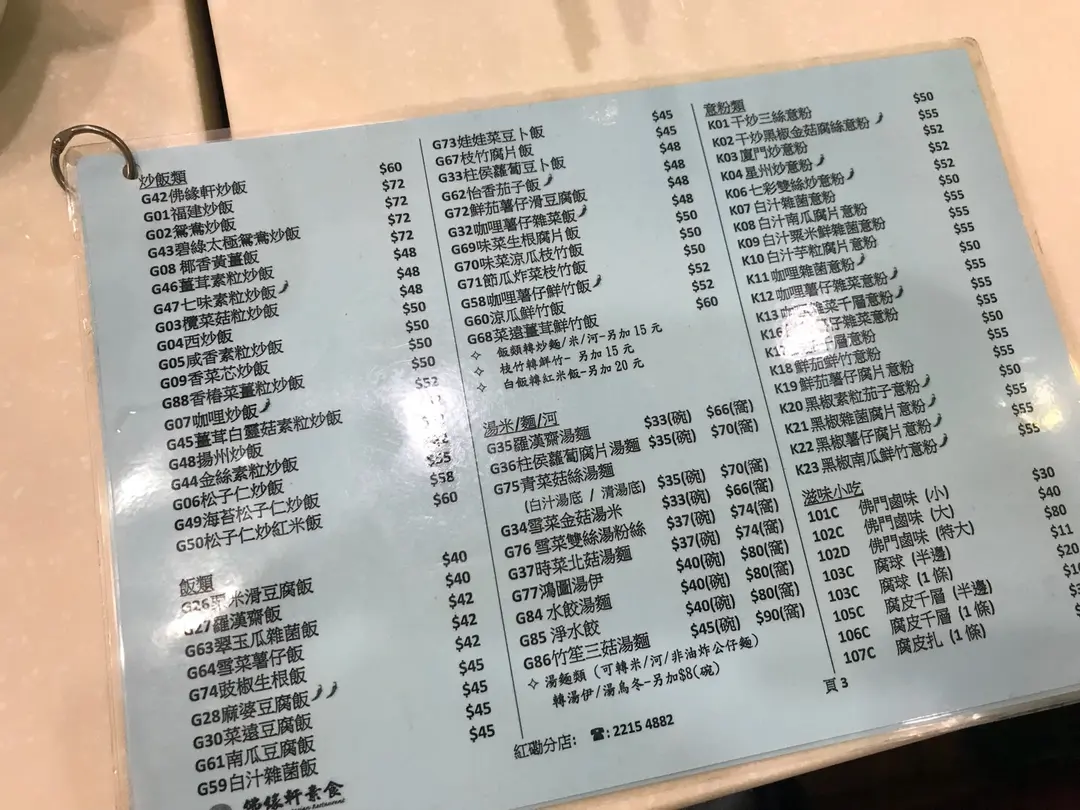 炒飯類
G42佛緣軒炒飯 $60
G01福建炒飯 $72
G02鴛鴦炒飯 $72
G43碧綠太極鴛鴦炒飯 $72
G08椰香黃薑飯 $72
G46薑茸素粒炒飯 $48
G47七味素粒炒飯 $48
G03欖菜菇粒炒飯 $48
G04西炒飯 $50
G05咸香素粒炒飯 $50
G09香菜芯炒飯 $50
G88香椿菜薑粒炒飯 $50
G07咖哩炒飯 $52
G45薑茸白靈菇素粒炒飯
G48揚州炒飯
G44金絲素粒炒飯
G06松子仁炒飯 $55
G49海苔松子仁炒飯 $58
G50松子仁炒紅米飯 $60
飯類
G26粟米滑豆腐飯 $40
G27羅漢齋飯 $40
G63翠玉瓜雜菌飯 $42
G64雪菜薯仔飯 $42
G74豉椒生根飯 $42
G28麻婆豆腐飯 $45
G30菜遠豆腐飯 $45
G61南瓜豆腐飯 $45
G59白汁雜菌飯 $45
佛緣軒素食
G73娃娃菜豆卜飯 $45
G67枝竹腐片飯 $45
G33柱侯蘿蔔豆卜飯 $48
G62怡香茄子飯 $48
G72鮮茄薯仔滑豆腐飯 $48
G32咖哩薯仔雜菜飯 $48
G69味菜生根腐片飯 $50
G70味菜涼瓜枝竹飯 $50
G71節瓜炸菜枝竹飯 $50
G58咖哩薯仔鮮竹飯 $52
G60涼瓜鮮竹飯 $52
G68菜遠薑茸鮮竹飯 $60
✧ 飯類轉炒麵/米/河-另加15元
✧ 枝竹轉鮮竹- 另加15元
✧ 白飯轉紅米飯-另加20元
湯米/麵/河
G35羅漢齋湯麵 $33(碗) $66(窩)
G36柱侯蘿蔔腐片湯麵 $35(碗) $70(窩)
G75青菜菇絲湯麵 $35(碗) $70(窩)
(白汁湯底 / 清湯底)
G34雪菜金菇湯米 $33(碗) $66(窩)
G76 雪菜雙絲湯粉絲 $37(碗) $74(窩)
G37時菜北菇湯麵 $37(碗) $74(窩)
G77鴻圖湯伊 $40(碗) $80(窩)
G84 水餃湯麵 $40(碗) $80(窩)
G85 淨水餃 $40(碗) $80(窩)
G86竹笙三菇湯麵 $45(碗) $90(窩)
✧ 湯麵類 (可轉米/河/非油炸公仔麵)
轉湯伊/湯烏冬-另加$8(碗)
紅磡分店: ☎: 2215 4882
意粉類
K01干炒三絲意粉 $50
K02干炒黑椒金菇腐絲意粉 $55
K03廈門炒意粉 $52
K04星州炒意粉 $52
K06七彩雙絲炒意粉 $52
K07白汁雜菌意粉 $50
K08白汁南瓜腐片意粉 $55
K09白汁粟米鮮雜菌意粉 $55
K10白汁芋粒腐片意粉 $55
K11咖哩雜菌意粉 $50
K12咖哩薯仔雜菜意粉 $55
K13咖哩雜菜千層意粉 $55
K16 仔雜菜意粉
千層意粉
K18鮮茄鮮竹意粉
K19鮮茄薯仔腐片意粉
K20黑椒素粒茄子意粉
K21黑椒雜菌腐片意粉
K22黑椒薯仔腐片意粉 $55
K23黑椒南瓜鮮竹意粉 $55
滋味小吃
101C 佛門鹵味 (小) $30
102C 佛門鹵味 (大) $40
102D 佛門鹵味 (特大) $80
103C 腐球 (半邊) $11
103C 腐球 (1條) $20
105C 腐皮千層 (半邊)
106C 腐皮千層 (1條)
107C 腐皮扎 (1條)
頁 3